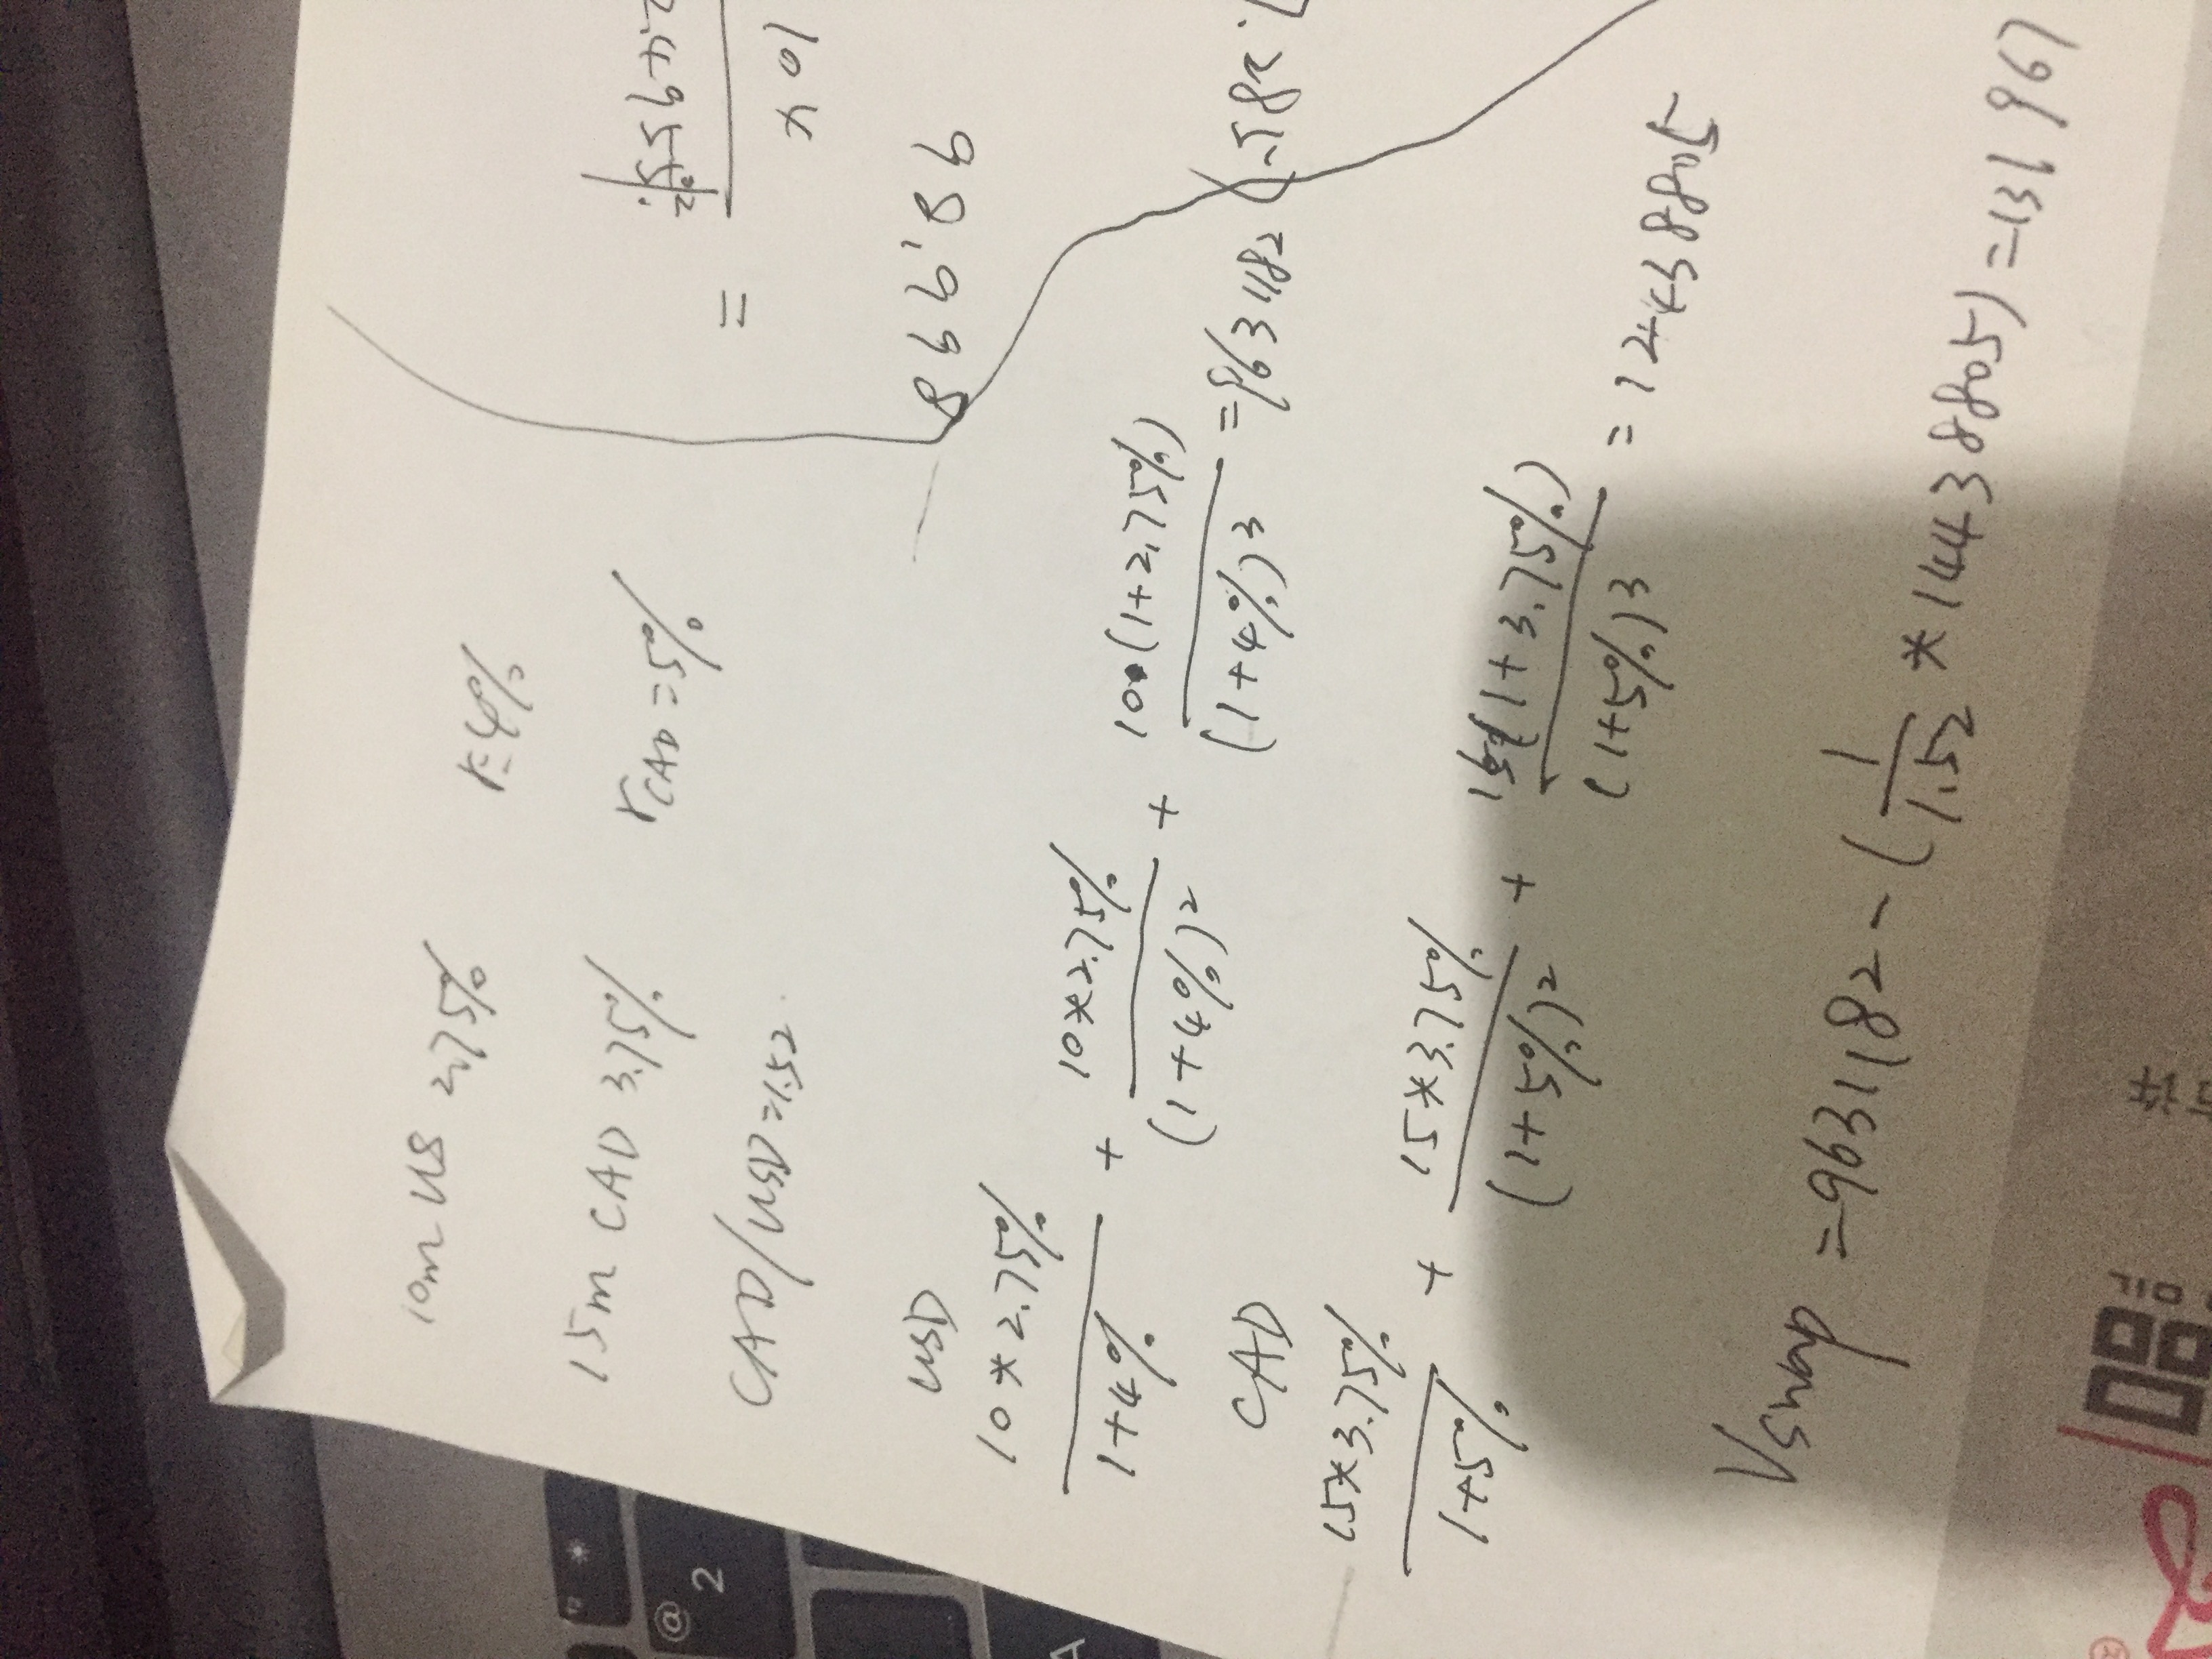 10m US 2.75% r=4%
15m CAD 3.75% rCAD=5%
CAD/USD=1.52
=
10%
98.9998
USD
10*2.75% / 1+4% + 10*2.75% / (1+4%)² + 10(1+2.75%) / (1+4%)³ = 9631182
CAD
15*3.75% / 1+5% + 15*3.75% / (1+5%)² + 15(1+3.75%) / (1+5%)³ = 12438805
Vswap = 9631182 - (1/1.52 * 14438805) = 131967
@
2
*
A